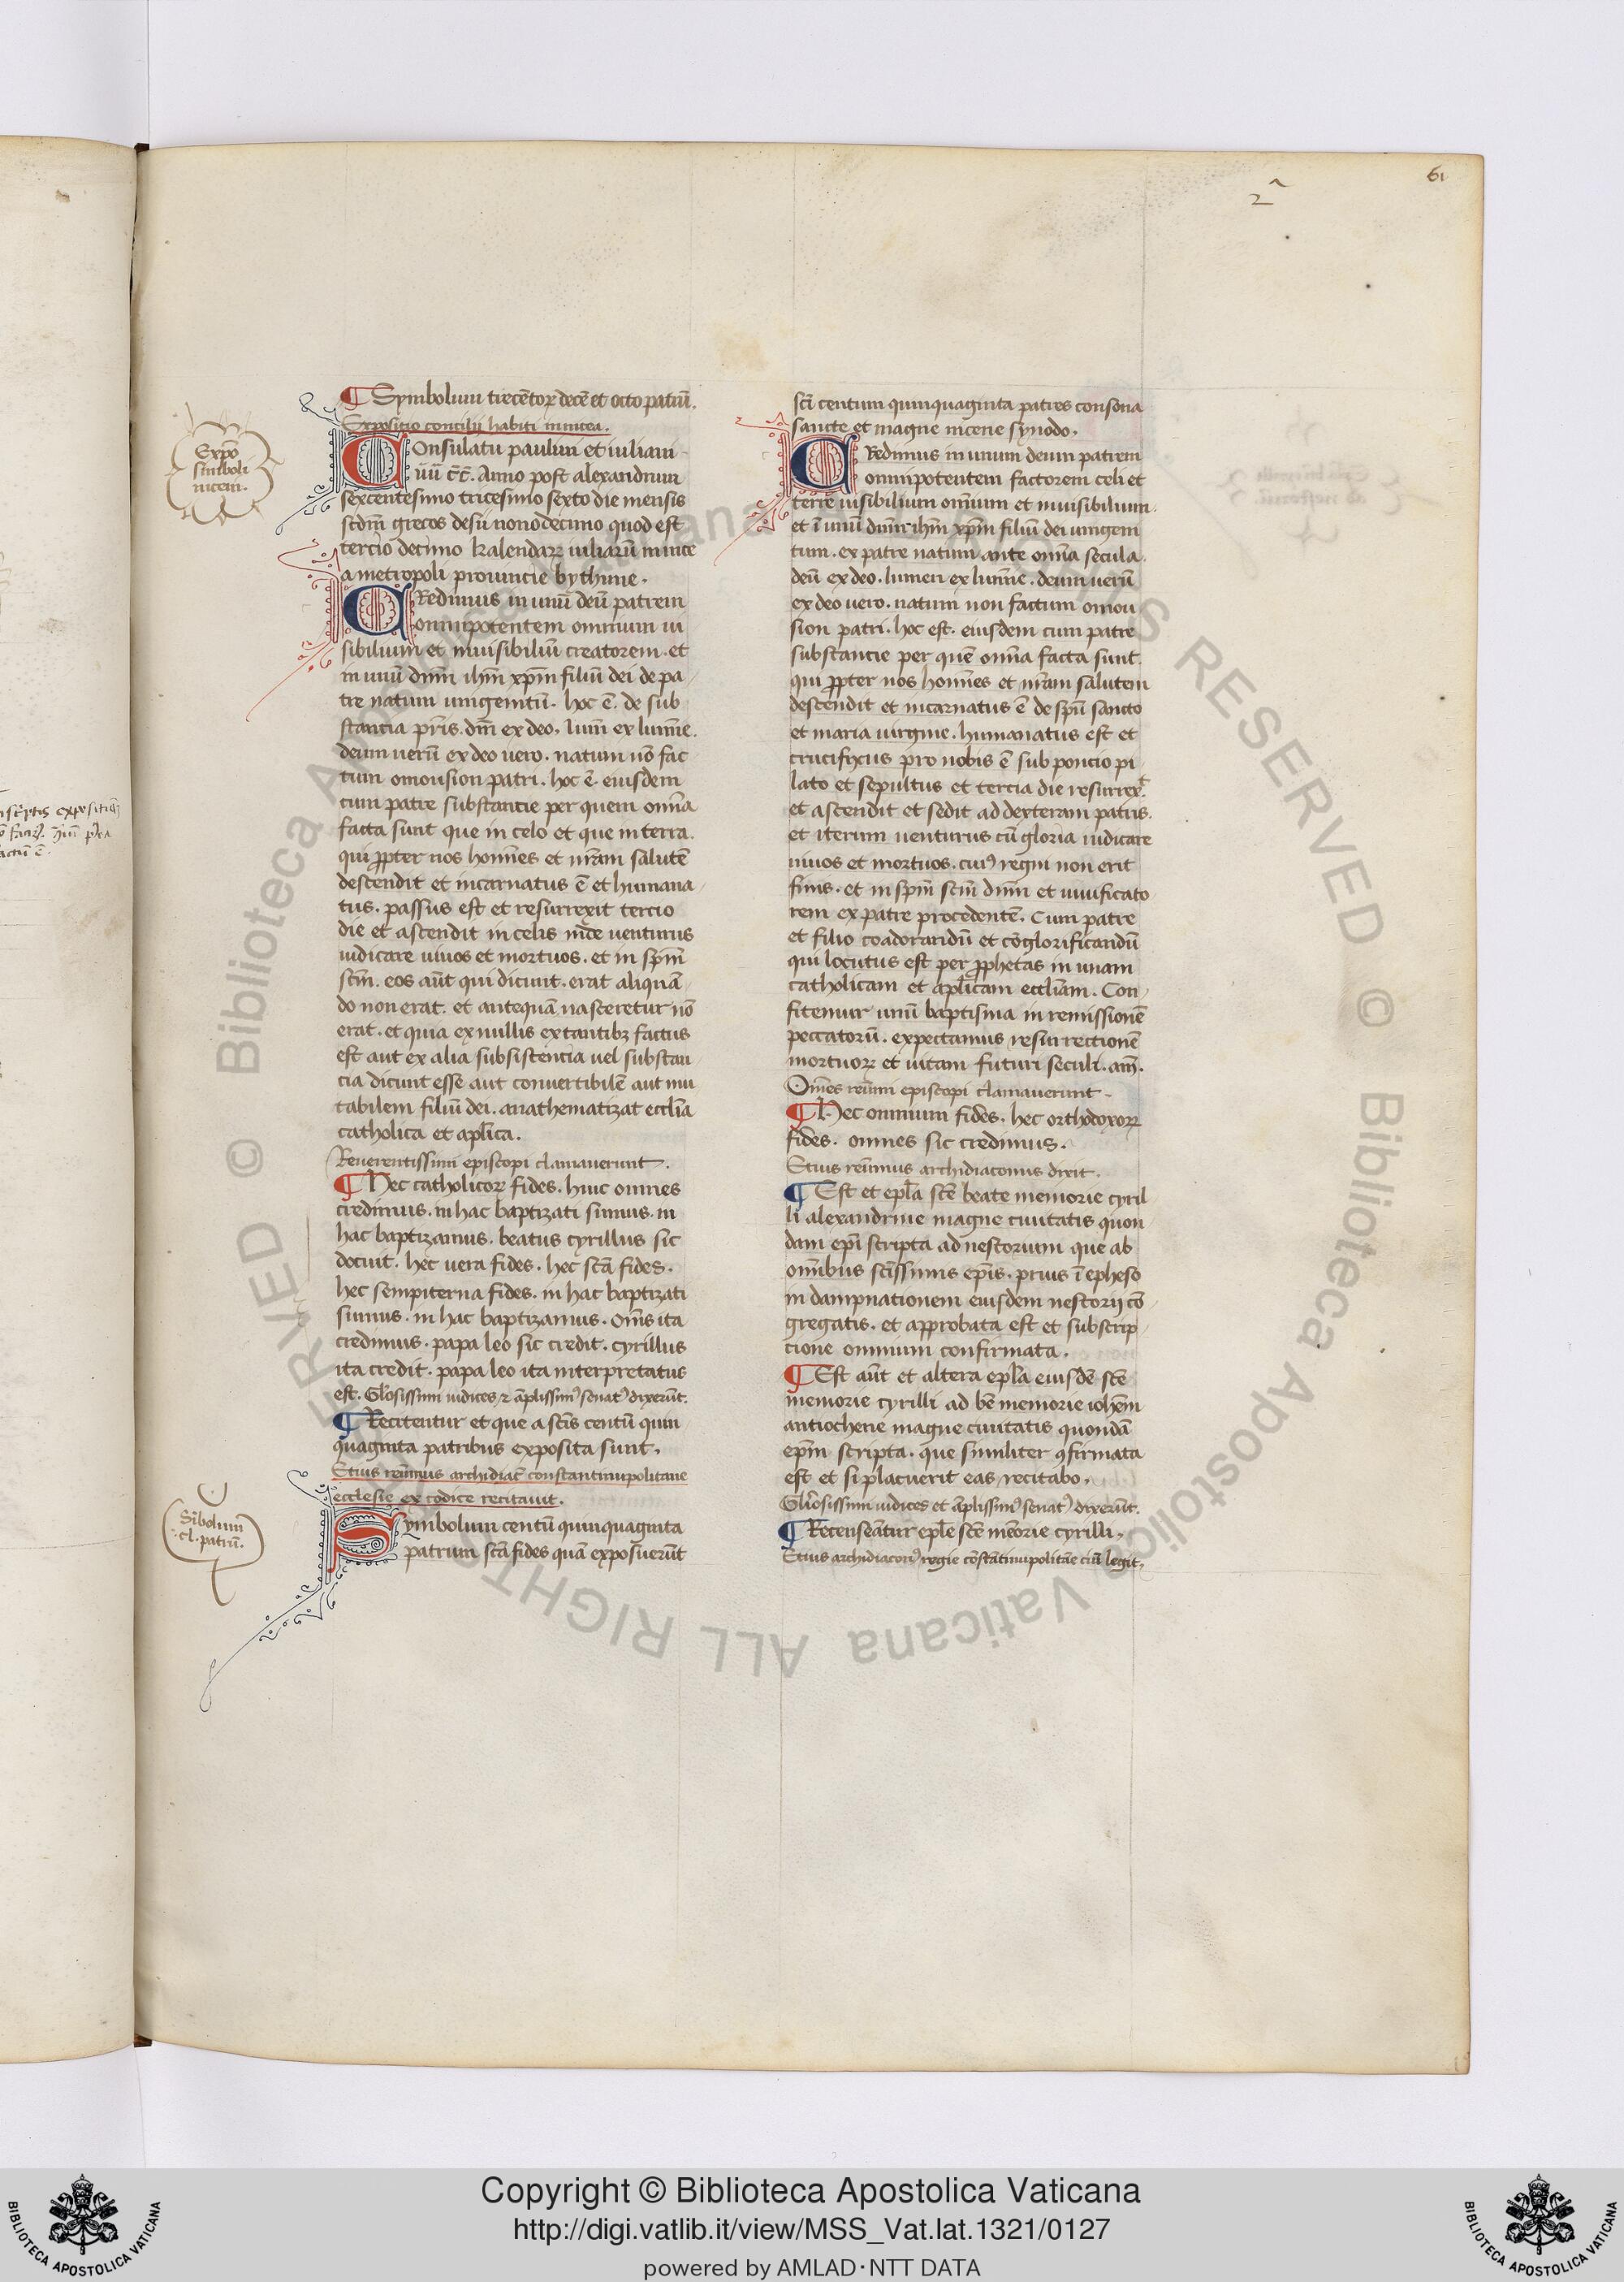 61
2ᵃ
¶ Symbolum trecētoꝝ decē et octo patrū.
Expositio concilij habiti in nicea.
Expō
simboli
nicem.
COnsulatu paulini et iuliani
uū c̄c̄. Anno post alexandrum
sexcentesimo tricesimo sexto die mensis
scdm̄ grecos desii nonodecimo quod est
tercio decimo kalendaꝝ iuliarū in nice
a metropoli prouincie bythinie.
CRedimus in unū deū patrem
omnipotentem omnium ui
sibilium et inuisibiliū creatorem. et
in unū dnm̄ ihm̄ xpm̄ filiū dei de pa
tre natum unigenitū. hoc ē. de sub
stancia pr̄is. dm̄ ex deo, lum̄ ex lumīe.
deum uerū ex deo uero. natum nō fac
tum omousion patri. hoc ē. eiusdem
cum patre substancie per quem om̄ia
facta sunt que in celo et que in terra.
qui ꝓpter nos homīes et nr̄am salutē
descendit et incarnatus ē et humana
tus. passus est et resurrexit tercio
die et ascendit in celis inde uenturus
iudicare uiuos et mortuos. et in spm̄
scm̄. eos aūt qui dicunt. erat aliquā
do non erat. et antequā nasceretur nō
erat. et quia ex nullis extantibꝫ factus
est aut ex alia subsistencia uel substan
cia dicunt esse aut conuertibilē aut mu
tabilem filiū dei. anathematizat eccl̄ia
catholica et apl̄ica.
Reuerentissimi episcopi clamauerunt.
¶ Hec catholicoꝝ fides. huic omnes
credimus. in hac baptizati sumus. in
hac baptizamus. beatus cyrillus sic
docuit. hec uera fides. hec scā fides.
hec sempiterna fides. in hac baptizati
sumus. in hac baptizamus. om̄s ita
credimus. papa leo sic credit. cyrillus
ita credit. papa leo ita interpretatus
est. Gl̄osissimi iudices ⁊ āplissimꝰ senatꝰ dixerūt.
¶ Recitentur et que a scīs centū quin
quaginta patribus exposita sunt.
Etius reūmus archidiac̄ constantinupolitane
ecclesie ex codice recitauit.
Sībolum
.cl. patrū.
SYmbolum centū quinquaginta
patrum scā fides quā exposuerūt
scī centum quinquaginta patres consona
sancte et magne nicene synodo.
CRedimus in unum deum patrem
omnipotentem factorem celi et
terre uisibilium omīum et inuisibilium.
et ī unū dnm̄ ihm̄ xpm̄ filiū dei unigeni
tum. ex patre natum ante om̄ia secula.
deū ex deo. lumen ex lumīe. deum uerū
ex deo uero. natum non factum omou
sion patri. hoc est. eiusdem cum patre
substancie per quē om̄ia facta sunt.
qui ꝓpter nos homīes et nr̄am salutem
descendit et incarnatus ē de spū sancto
et maria uirgine. humanatus est et
crucifixus pro nobis ē sub poncio pi
lato et sepultus et tercia die resurrex̄
et ascendit et sedit ad dexteram patris.
et iterum uenturus cū gloria iudicare
uiuos et mortuos. cuiꝰ regni non erit
finis. et in spm̄ scm̄ dnm̄ et uiuificato
rem ex patre procedentē. Cum patre
et filio coadorandū et cōglorificandū
qui locutus est per ꝓphetas in unam
catholicam et apl̄icam eccl̄iam. Con
fitemur unū baptisma in remissionē
peccatorū. expectamus resurrectionē
mortuoꝝ et uitam futuri seculi. am̄.
Om̄es reūmi episcopi clamauerunt.
¶ Hec omnium fides. hec orthodoxoꝝ
fides. omnes sic credimus.
Etius reūmus archidiaconus dixit.
¶ Est et epl̄a scē beate memorie cyril
li alexandrine magne ciuitatis quon
dam epī scripta ad nestorium que ab
om̄ibus scīssimis ep̄is. prius ī epheso
in dampnationem eiusdem nestorij cō
gregatis. et approbata est et subscrip
cione omnium confirmata.
¶ Est aūt et altera epl̄a eiusdē scē
memorie cyrilli ad bē memorie iohēm
antiochene magne ciuitatis quondā
epm̄ scripta. que similiter ꝯfirmata
est et si placuerit eas recitabo.
Gl̄iosissimi iudices et āplissimꝰ senatꝰ dixerūt.
¶ Recenseātur epl̄e scē mēorie cyrilli.
Etius archidiaconꝰ regie cōstātinupolitāe ciuī legit.
Copyright © Biblioteca Apostolica Vaticana
http://digi.vatlib.it/view/MSS_Vat.lat.1321/0127
powered by AMLAD·NTT DATA
BIBLIOTECA APOSTOLICA VATICANA
BIBLIOTECA APOSTOLICA VATICANA
© Biblioteca Apostolica Vaticana ALL RIGHTS RESERVED
© Biblioteca Apostolica Vaticana ALL RIGHTS RESERVED